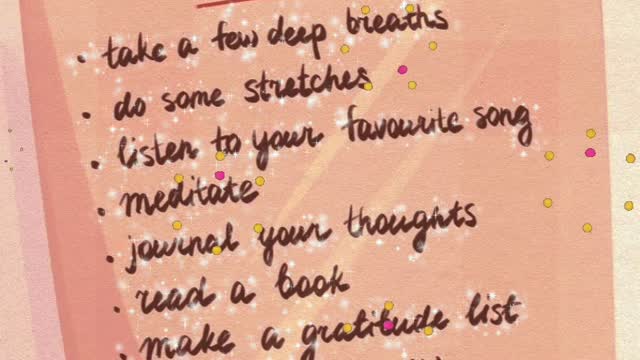 • take a few deep breaths
• do some stretches
• listen to your favourite song
• meditate
• journal your thoughts
• read a book
• make a gratitude list